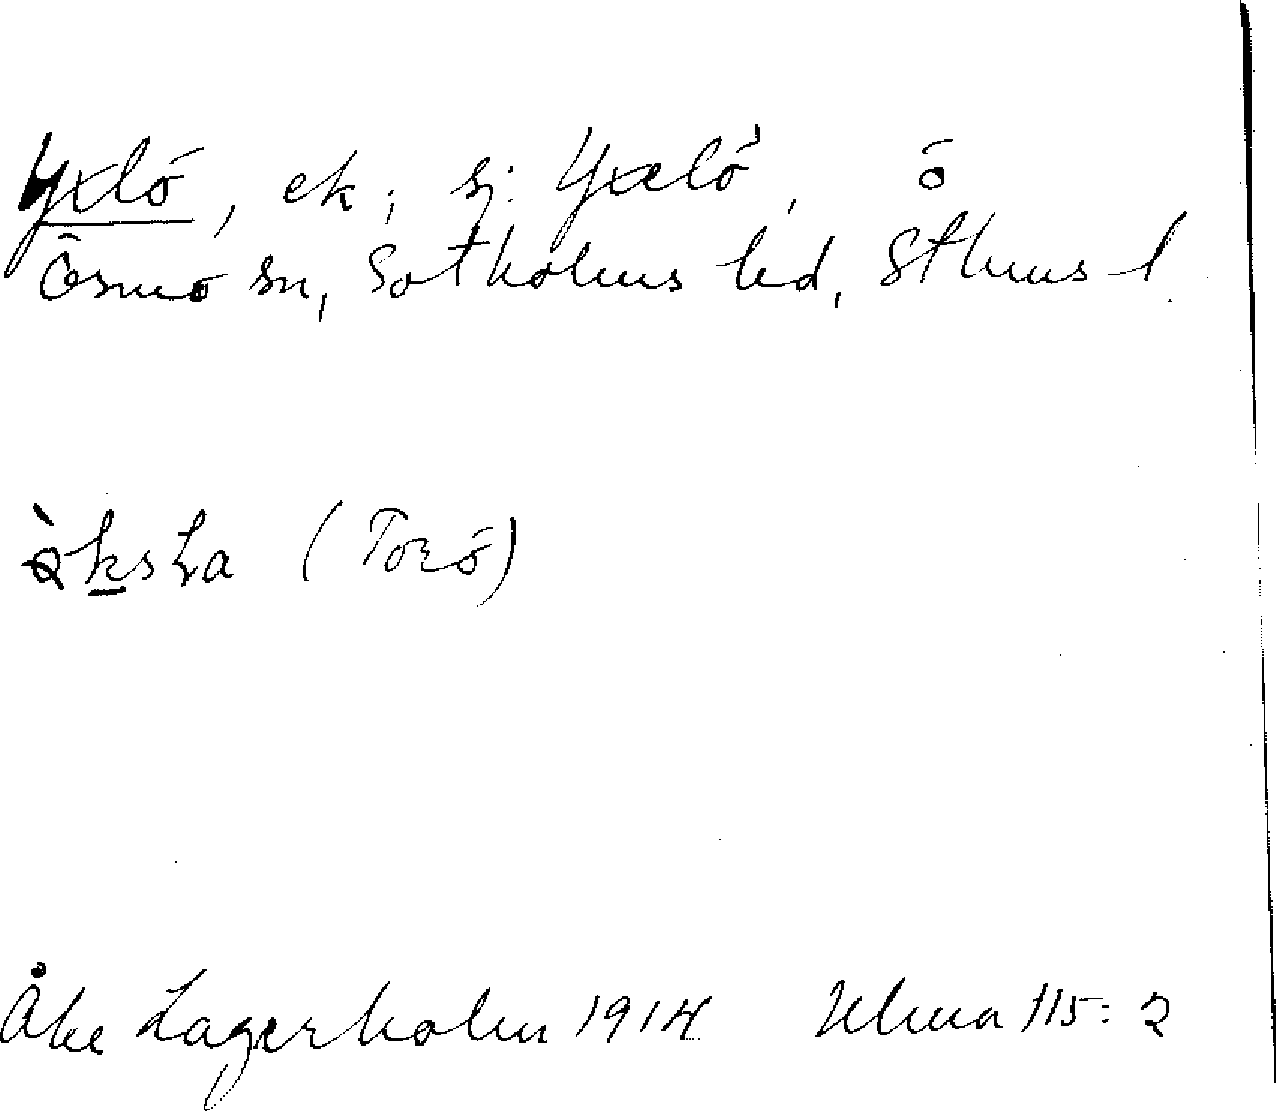 Yxlö, ek; sj: Yxelö, ö
Ösmo sn, Sotholms hd, Sthms l.
(Torö)
Åke Lagerholm 1914 Ulma 115:2